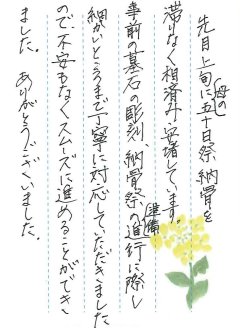 先月上旬に母の五十日祭、納骨を
滞りなく相済み安堵しています。
事前の墓石の彫刻、納骨祭の準備進行に際し
細かいところまで丁寧に対応していただきました
ので不安もなくスムーズに進めることができ
ました。ありがとうございました。